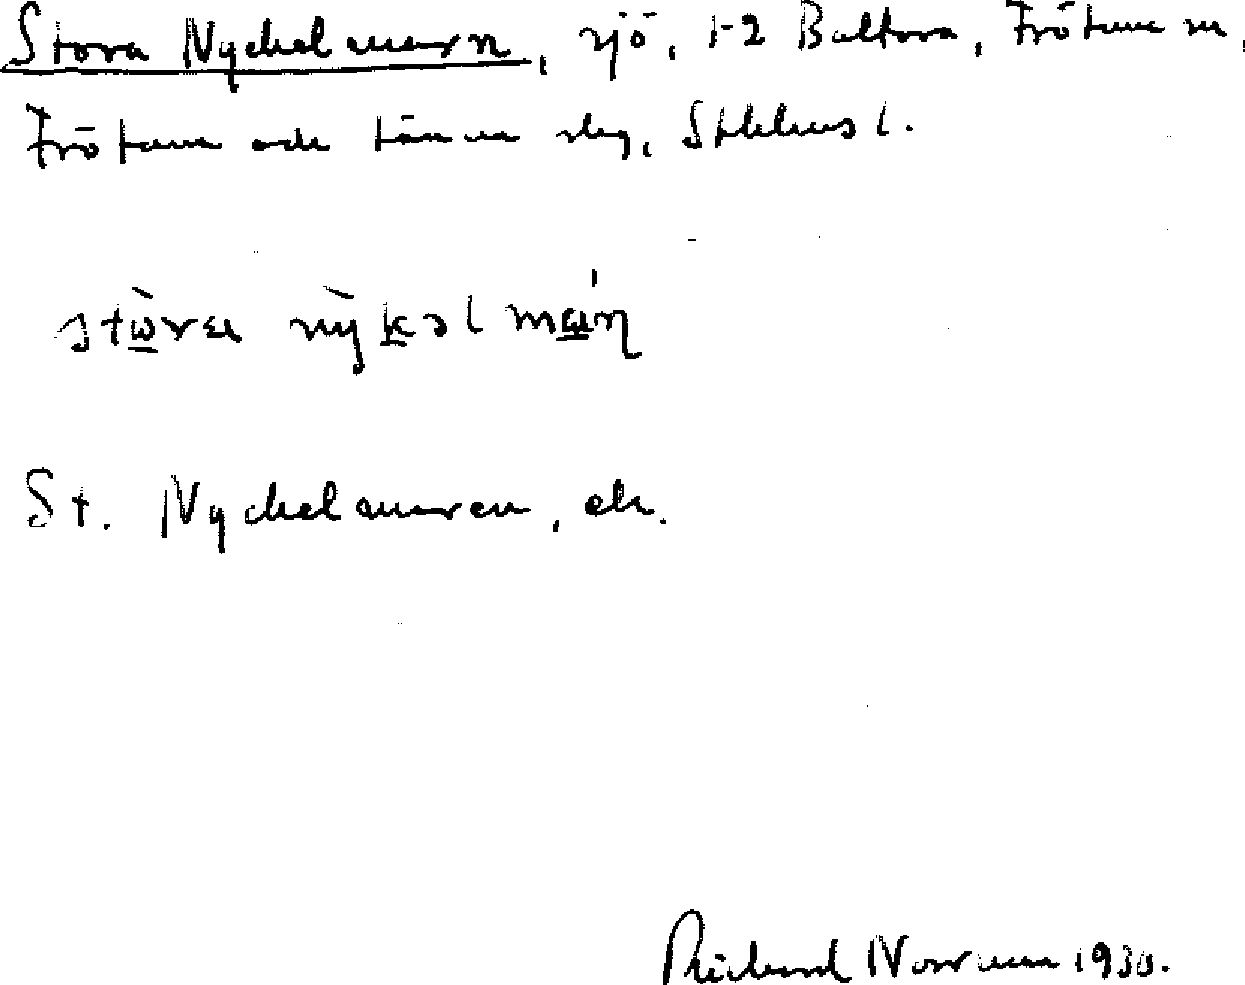 Stora Nyckelmaren, sjö, 1-2 Baltora, Frötuna sn,
Frötuna och Länna slg, Sthlms l.
stora nykəl
St. Nyckelmaren, ek.
Richard Norrman 1930.